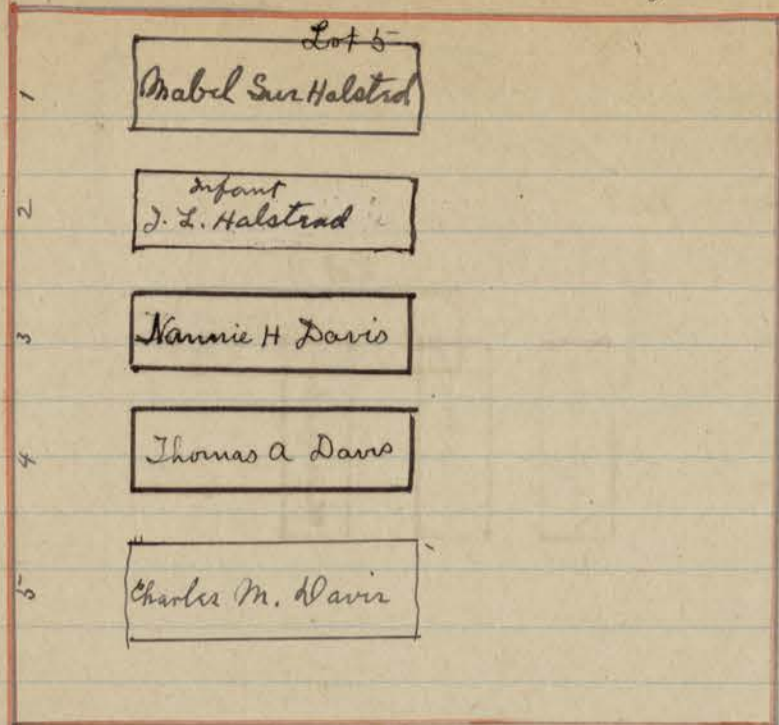 Lot 5
1 Mabel Sue Halsted
2 Infant
J. L. Halstead
3 Nannie H Davis
4 Thomas A Davis
5 Charles M. Davis